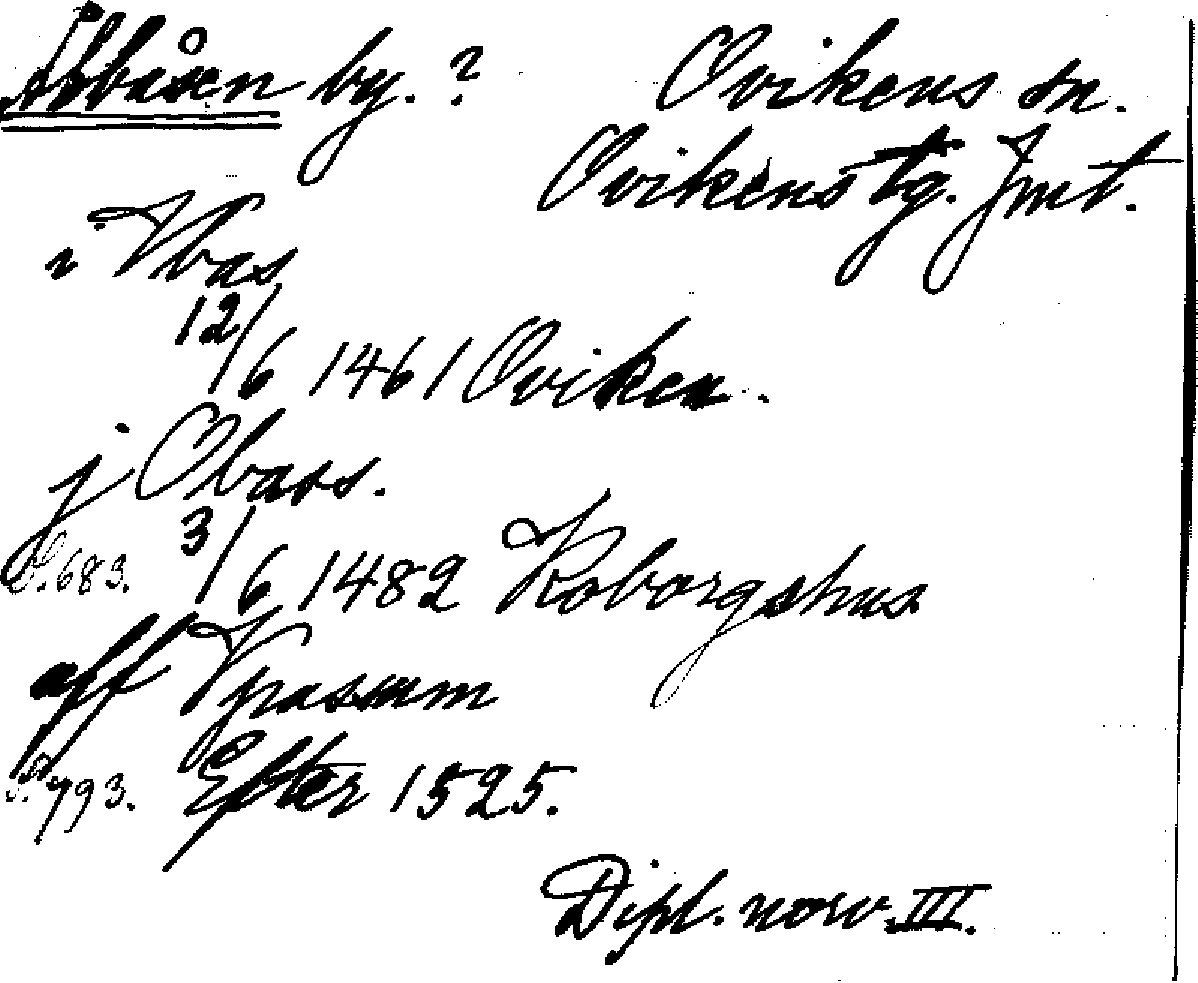 Abbåsen by. ? Ovikens sn.
Ovikens tg. Jmt.
i Vbas
12/6 1461 Oviken.
j Obaas.
S. 683. 3/6 1482 Koborgshus
aff Vpasum
S. 793. Efter 1525.
Dipl. norv. III.